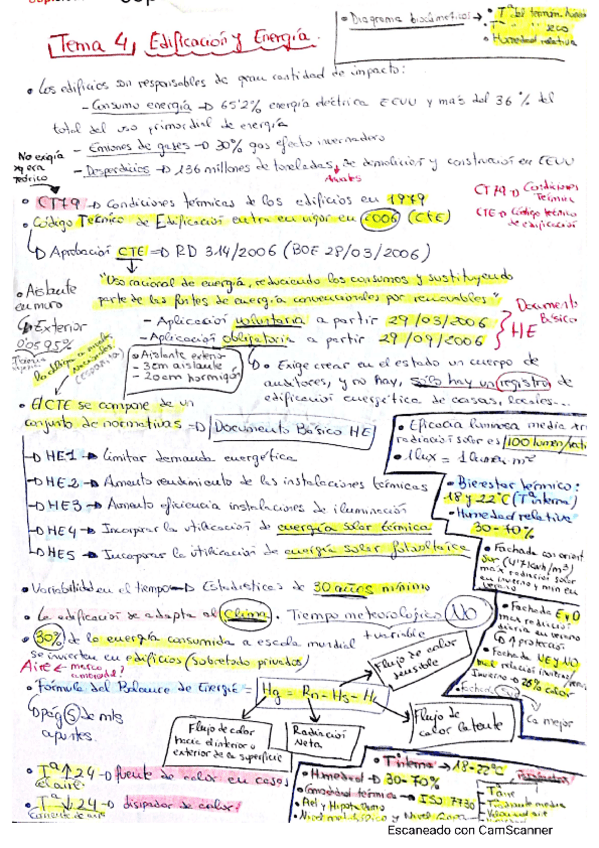 Tema 4, Edificación y Energía.
• Diagrama bioclimático →
• Tª del termóm. húmedo
seco
• Humedad relativa
• Los edificios son responsables de gran cantidad de impacto:
- Consumo energía → 65'2% energía eléctrica EEUU y más del 36% del
total del uso primordial de energía
- Emisiones de gases → 30% gas efecto invernadero
- Desperdicios → 136 millones de toneladas de demolición y construcción en EEUU
Anuales
No exigía
teórico
• CT79 → Condiciones térmicas de los edificios en 1979
• Código Técnico de Edificación entra en vigor en 2006 (CTE)
CT79 → Condiciones
Térmicas
CTE → Código técnico
de edificación
↳ Aprobación CTE ⇒ RD 314/2006 (BOE 28/03/2006)
"Uso racional de energía, reduciendo los consumos y sustituyendo
parte de las fuentes de energía convencionales por renovables"
- Aplicación voluntaria a partir 29/03/2006
- Aplicación obligatoria a partir 29/09/2006
Documento
Básico
HE
• Aislante
en muro
↳ Exterior
95%
• Aislante externo
- 3cm aislante
- 20cm hormigón
↳ • Exige crear en el estado un cuerpo de
auditores, y no hay, sólo hay un registro de
edificación energética de casas, locales...
• El CTE se compone de un
conjunto de normativas → Documento Básico HE
→ HE1 → Limitar demanda energética
→ HE2 → Aumento rendimiento de las instalaciones térmicas
→ HE3 → Aumento eficiencia instalaciones de iluminación
→ HE4 → Incorporar la utilización de energía solar térmica
→ HE5 → Incorporar la utilización de energía solar fotovoltaica
• Eficacia luminosa media
radiación solar es 100 lumen/
• 1 lux = 1 lumen m²
• Bienestar térmico:
18 y 22ºC (Tª interna)
• Humedad relativa
30-70%
• Fachada con orient
sur (4'7 Kwh/m²)
max radiación solar
en invierno y min en
verano
• Fachada E y O
max radiación
diaria en verano
↑ protección
• Fachada NE y NO
mal relación invierno/
Invierno → 28% calor
La mejor
• Variabilidad en el tiempo → Estadísticas de 30 años mínimo
• La edificación se adapta al Clima. Tiempo meteorológico NO
↑ variable
• 30% de la energía consumida a escala mundial
se invierten en edificios (sobretodo privados)
• Fórmula del Balance de Energía = Hg = Rn - Hs - H
↳ pág 5 de mis
apuntes.
Flujo de calor
sensible
Flujo de calor
hacia el interior o
exterior de la superficie
Radiación
Neta
Flujo de
calor latente
• Tª ↑ 24 → fuente de calor en casos
el aire
• Tª ↓ 24 → disipador de calor
• Tª interna → 18-22ºC
• Humedad → 30-70%
• Comodidad térmica → ISO 7730
• Piel y Hipotálamo
Tª aire
Tª radiante media
Velocidad aire
Escaneado con CamScanner